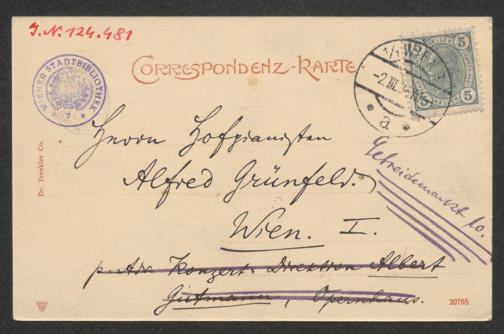 J. N. 124.481
WIENER STADTBIBLIOTHEK
CORRESPONDENZ-KARTE
1/1 WIEN
-2.III.
* a *
5 5
5
Herrn Hofpianisten
Alfred Grünfeld.
Wien. I.
Getreidemarkt 10.
p. Adr. Konzert-Direktion Albert
Gutmann, Opernhaus.
Dr. Trenkler Co.
20765